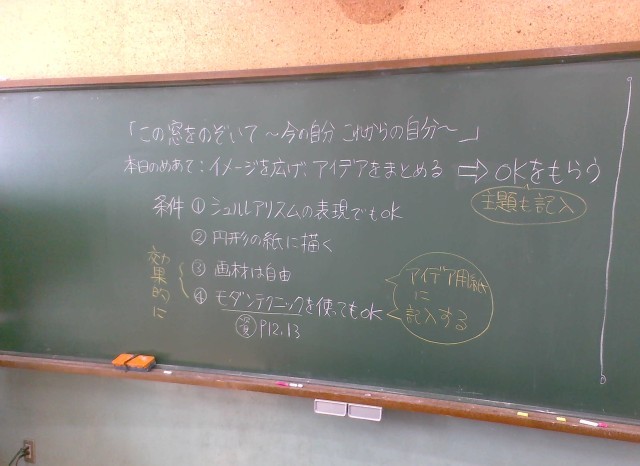 「この窓をのぞいて ～今の自分 これからの自分～」
本日のめあて：イメージを広げ、アイデアをまとめる ⇨ OKをもらう
主題も記入
条件 ① シュルレアリスムの表現でもOK
② 円形の紙に描く
③ 画材は自由
④ モダンテクニックを使ってもOK
効果的に
P12.13
アイデア用紙
に
記入する